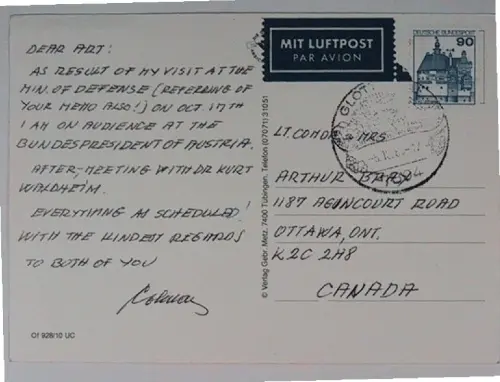 DEAR ART:
AS RESULT OF MY VISIT AT THE
MIN. OF DEFENSE (REFERRING OF
YOUR MEMO ALSO!) ON OCT 17TH
I AM ON AUDIENCE AT THE
BUNDESPRESIDENT OF AUSTRIA.
AFTER, MEETING WITH DR KURT
WALDHEIM.
EVERYTHING AS SCHEDULED!
WITH THE KINDEST REGARDS
TO BOTH OF YOU
Of 928/10 UC
© Verlag Gebr. Metz, 7400 Tübingen, Telefon (07071) 31051
MIT LUFTPOST
PAR AVION
DEUTSCHE BUNDESPOST
90
GLOT
7804
LT. COMDR & MRS
ARTHUR
1187 AGINCOURT ROAD
OTTAWA, ONT.
K2C 2H8
CANADA